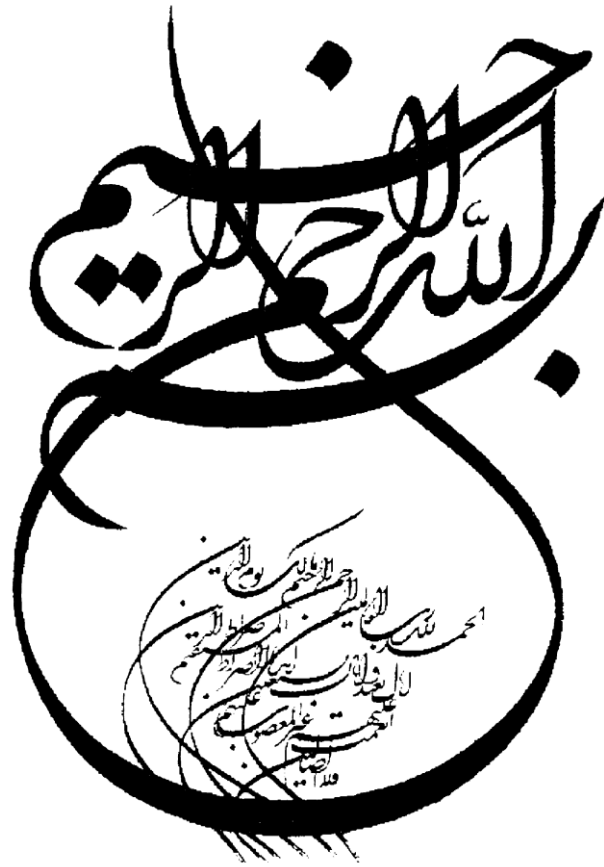 بسم الله الرحمن الرحيم
الحمد لله رب العالمين
الرحمن الرحيم مالك يوم الدين
إياك نعبد وإياك نستعين
اهدنا الصراط المستقيم
صراط الذين أنعمت عليهم
غير المغضوب عليهم
ولا الضالين